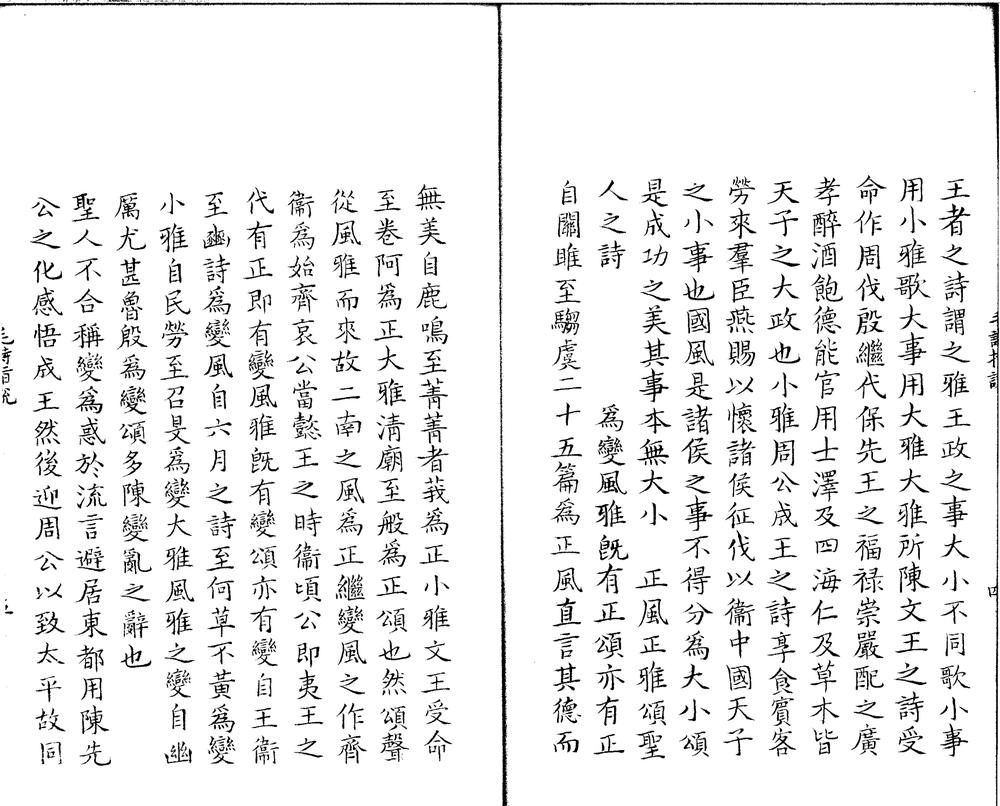 王者之詩謂之雅王政之事大小不同歌小事
用小雅歌大事用大雅大雅所陳文王之詩受
命作周伐殷繼代保先王之福祿崇嚴配之廣
孝醉酒飽德能官用士澤及四海仁及草木皆
天子之大政也小雅周公成王之詩享食賓客
勞來羣臣燕賜以懷諸侯征伐以衞中國天子
之小事也國風是諸侯之事不得分爲大小頌
是成功之美其事本無大小 正風正雅頌聖
人之詩 爲變風雅旣有正頌亦有正
自關雎至騶虞二十五篇為正風直言其德而
無美自鹿鳴至菁菁者莪爲正小雅文王受命
至卷阿爲正大雅清廟至般爲正頌也然頌聲
從風雅而來故二南之風爲正繼變風之作齊
衞爲始齊哀公當懿王之時衞頃公即夷王之
代有正即有變風雅旣有變頌亦有變自王衞
至豳詩爲變風自六月之詩至何草不黃爲變
小雅自民勞至召旻爲變大雅風雅之變自幽
厲尤甚魯殷爲變頌多陳變亂之辭也
聖人不合稱變爲惑於流言避居東都用陳先
公之化感悟成王然後迎周公以致太平故同